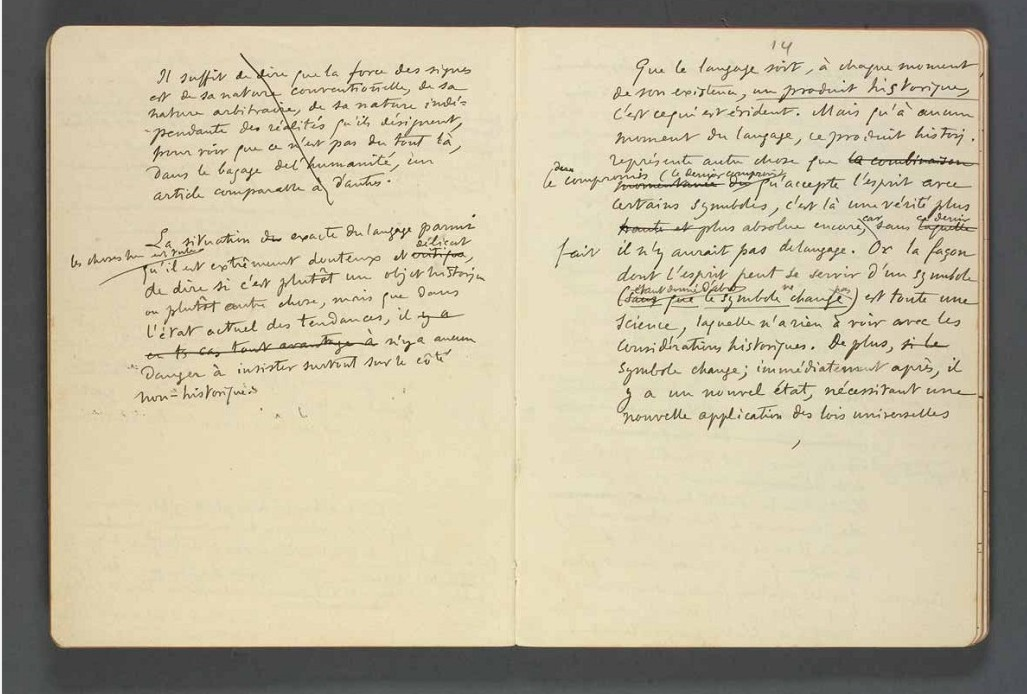 Il suffit de dire que la force des signes
est de sa nature conventionelle, de sa
nature arbitraire, de sa nature indé-
pendante des réalités qu'ils désignent,
pour voir que ce n'est pas du tout là,
dans le bagage de l'humanité, un
article comparable à d'autres.
La situation exacte du langage parmi
les choses humaines est telle
délicat
qu'il est extrêmement douteux et critique,
de dire si c'est plutôt un objet historique
ou plutôt autre chose, mais que dans
l'état actuel des tendances, il y a
en ts cas tout avantage à n'y a aucun
Danger à insister surtout sur le côté
non-historique.
14
Que le langage soit, à chaque moment
de son existence, un produit historique,
c'est ce qui est évident. Mais qu'à aucun
moment du langage, ce produit histori.
représente autre chose que la combinaison
le compromis (le dernier compromis)
momentanée du qu'accepte l'esprit avec
certains symboles, c'est là une vérité plus
car ce dernier
haute et plus absolue encore, sans laquelle
fait il n'y aurait pas de langage. Or la façon
dont l'esprit peut se servir d'un symbole
étant donné d'abord ne pas
(sans que le symbole change) est toute une
Science, laquelle n'a rien à voir avec les
considérations historiques. De plus, si le
symbole change; immédiatement après, il
y a un nouvel état, nécessitant une
nouvelle application des lois universelles